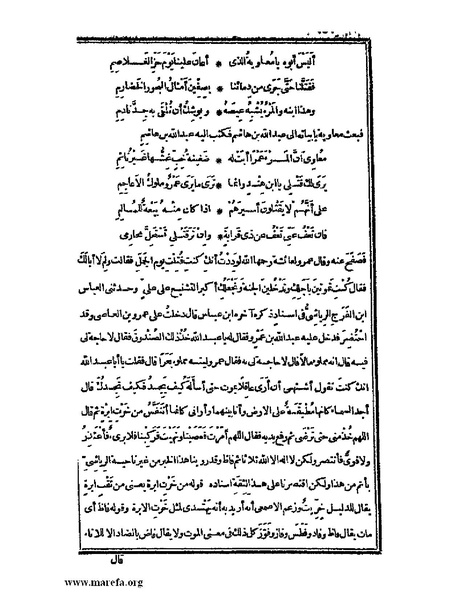 أليس أبوه يا معاوية الذى * أعان علينا يوم حز الغلاصم
فقتلنا حتى جرى من دمائنا * بصفين أمثال البحور الخضارم
وهذا ابنه والمرء يشبه عيصه * ويوشك أن تلقى به جد نادم
فبعث معاوية بأبياته الى عبدالله بن هاشم فكتب اليه عبدالله بن هاشم
معاوى ان المرء عمرا أبت له * ضغينة خب غشها غير نائم
يرى لك قتلى يا ابن هند وانما * ترى ما يرى عمرو ملوك الاعاجم
على أنهم لا يقتلون أسيرهم * اذا كان منه بيعة للمسالم
فان تعف عنى تعف عن ذى قرابة * وان تر قتلى تستحل محارمى
فصفح عنه وقال عمرو لعائشة رحمها الله لوددت أنك كنت قتلت يوم الجمل فقالت ولم لا أبالك
فقال كنت تموتين بأجلك وتدخلين الجنة ونجعلك أكبر التشنيع على على وحدثنى العباس
ابن الفرج الرياشى فى اسناد ذكره آخره ابن عباس قال دخلت على عمرو بن العاصى وقد
احتضر فدخل عليه عبدالله بن عمرو فقال له يا عبدالله خذ ذلك الصندوق فقال لا حاجة لى
فيه قال انه مملوء مالا قال لا حاجة لى به فقال عمرو ليته مملوء بعرا قال فقلت يا أبا عبدالله
انك كنت تقول أشتهى أن أرى عاقلا يموت حتى أسأله كيف يجد فكيف تجدك قال
أجد السماء كانها مطبقة على الارض وأنا بينهما وأرانى كانما أتنفس من خرت ابرة ثم قال
اللهم خذ منى حتى ترضى ثم رفع يده فقال اللهم أمرت فعصينا ونهيت فركبنا فلا برىء فأعتذر
ولا قوى فأنتصر ولكن لا اله الا الله ثلاثا ثم فاظ وقد روينا هذا الخبر من غير ناحية الرياشى
بأتم من هذا ولكن اقتصرنا على هذا لثقة اسناده قوله من خرت ابرة يعنى من ثقب ابرة
يقال للدليل خريت وزعم الاصمعى أنه أريد به أنه يهتدى لمثل خرت الابرة وقوله فاظ أى
مات يقال فاظ وفاد وفطس وفاز وفوز كل ذلك فى معنى الموت ولا يقال فاض بالضاد الا للاناء
قال
www.marefa.org